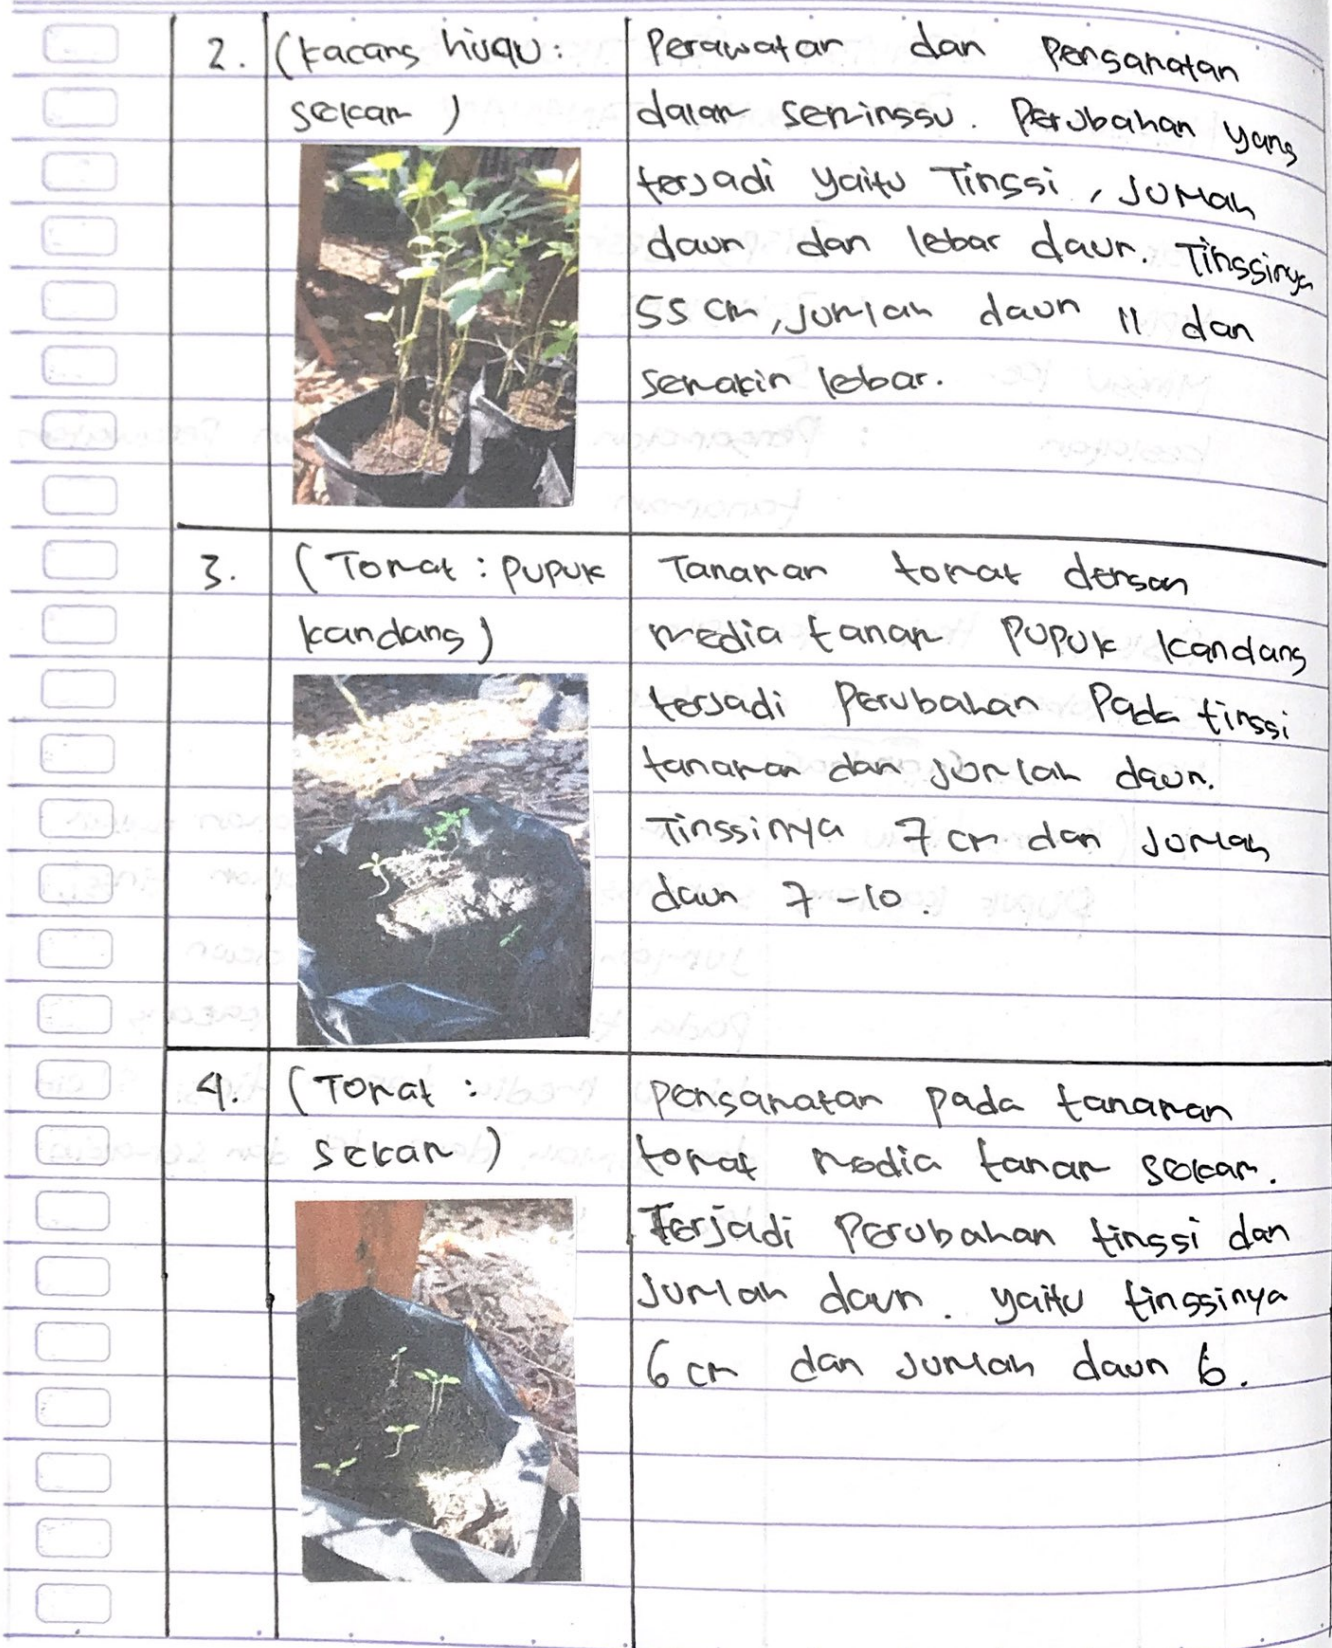 2. (kacang hijau:
sekam)
Perawatan dan Pengamatan
dalam seminggu. Perubahan yang
terjadi yaitu Tinggi, Jumlah
daun dan lebar daun. Tingginya
55 cm, jumlah daun 11 dan
semakin lebar.
3. (Tomat : pupuk
kandang)
Tanaman tomat dengan
media tanam pupuk kandang
terjadi Perubahan Pada tinggi
tanaman dan jumlah daun.
Tingginya 7 cm dan Jumlah
daun 7-10.
4. (Tomat :
sekam)
pengamatan pada tanaman
tomat media tanam sekam.
Terjadi Perubahan tinggi dan
Jumlah daun. yaitu tingginya
6 cm dan Jumlah daun 6.